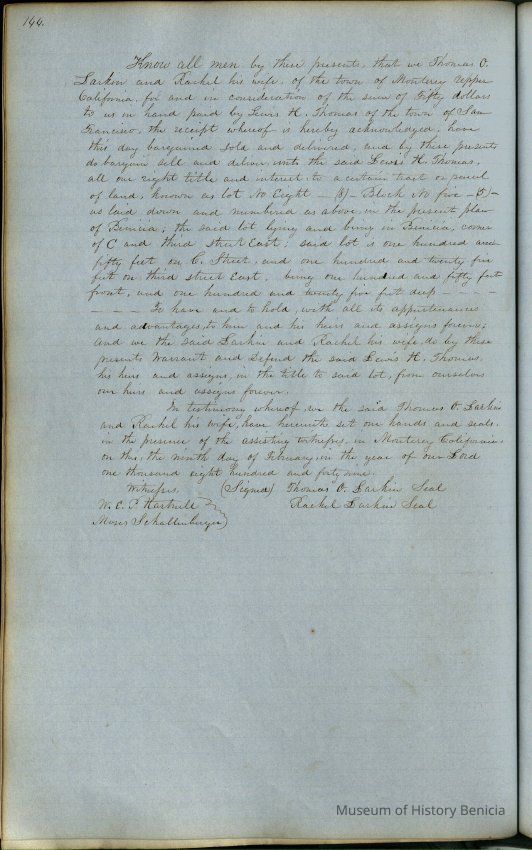 144.
Know all men by these presents, that we Thomas O.
Larkin and Rachel his wife, of the town of Monterey Upper
California, for and in consideration of the sum of Fifty dollars
to us in hand paid by Lewis H. Thomas of the town of San
Francisco, the receipt whereof is hereby acknowledged, have
this day bargained sold and delivered, and by these presents
do bargain sell and deliver, unto the said Lewis H. Thomas,
all our right title and interest to a certain tract or parcel
of land, known as lot No Eight - (8) - Block No five - (5) -
as laid down and numbered as above in the present plan
of Benicia; the said lot lying and being in Benicia, corner
of C and third street East; said lot is one hundred and
fifty feet on C. Street, and one hundred and twenty five
feet on third street East. being one hundred and fifty feet
front, and one hundred and twenty five feet deep
To have and to hold, with all its appurtenances
and advantages, to him and his heirs and assigns forever;
and we the said Larkin and Rachel his wife, do by these
presents Warrant and Defend the said Lewis H. Thomas,
his heirs and assigns, in the title to said lot, from ourselves
our heirs and assigns forever.
In testimony whereof, we the said Thomas O. Larkin
and Rachel his wife, have herewith set our hands and seals,
in the presence of the assisting witnesses, in Monterey California,
on this, the ninth day of February, in the year of our Lord
one thousand eight hundred and forty nine.
Witnesses. (Signed) Thomas O. Larkin Seal
W. E. P. Hartnell Rachel Larkin Seal
Moses Schallenberger
Museum of History Benicia